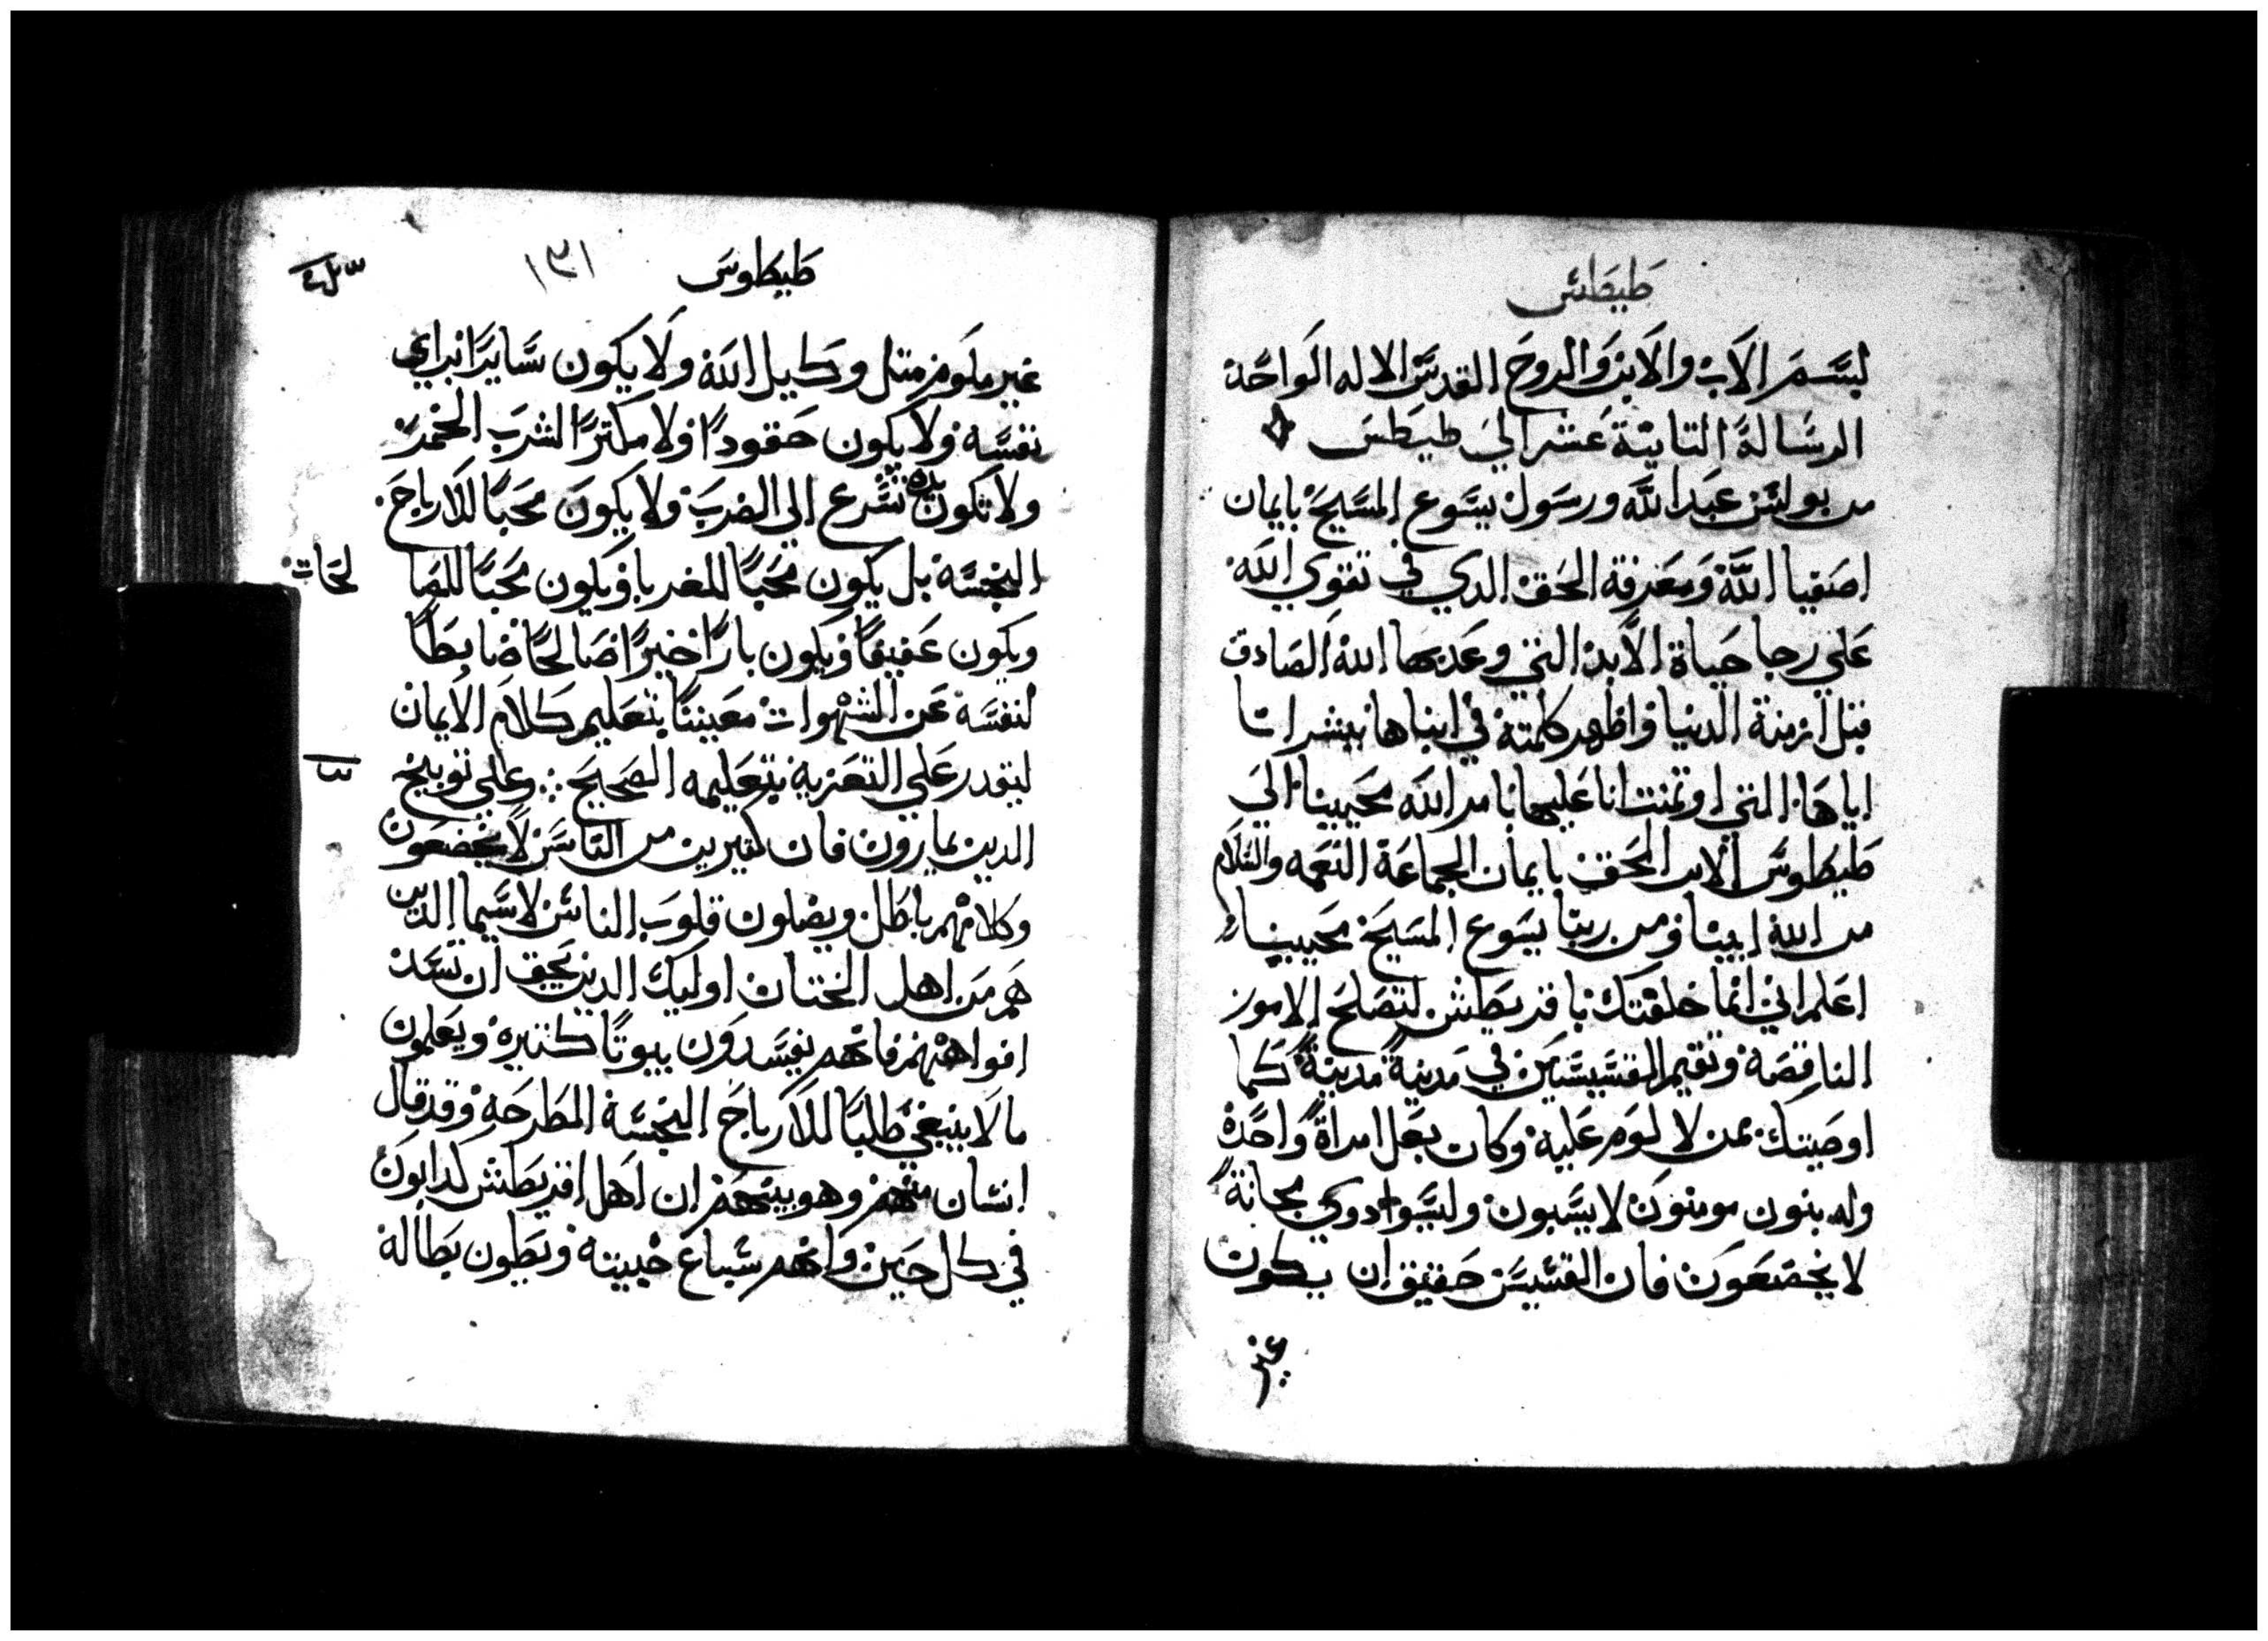 طيطس
بسم الاب والابن والروح القدس الاله الواحد
الرساله الثانية عشر الي طيطس
من بولس عبد الله ورسول يسوع المسيح بايمان
اصفيا الله ومعرفة الحق الدي في تقوي الله
علي رجا حياة الابد التي وعد بها الله الصادق
قبل ازمنة الدنيا واظهر كلمته في ابناها ببشراتنا
اياها التي اوتمنت انا عليها بامر الله محيينا الي
طيطوس الابن الحق بايمان الجماعة النعمه والسلام
من الله ابينا ومن ربنا يسوع المسيح محيينا
اعلم اني انما خلفتك باقريطش لتصلح الامور
الناقصة وتقيم القسيسين في مدينة مدينة كما
اوصيتك بمن لا لوم عليه وكان بعل امراة واحدة
وله بنون مومنون لا يسبون وليسوا دوي مجانة
لا يخضعون فان القسيس حقيق ان يكون
غير
طيطوس ١٣١
غير ملوم متل وكيل الله ولا يكون سايرًا براي
نفسه ولا يكون حقودًا ولا مكترًا لشرب الخمر
ولا تكون يده تسرع الي الضرب ولا يكون محبًا للارباح
النجسه بل يكون محبًا للغربا ويكون محبًا للصا لحات
ويكون عفيفًا ويكون بارًا خيرًا صالحًا ضابطًا
لنفسه عن الشهوات معينًا بتعليم كلام الايمان
ليقدر علي التعزيه بتعليمه الصحيح وعلي توبيخ
الدين يمارون فان كتيرين من الناس لا يخضعون
وكلامهم باطل ويضلون قلوب الناس لا سيما الدين
هم من اهل الختان اوليك الدين يحق ان تسد
افواههم فانهم يفسدون بيوتًا كتيره ويعلمون
ما لا ينبغي طلبًا للارباح النجسة المطرحه وقد قال
انسان منهم وهو نبيهم ان اهل اقريطش كدابون
في كل حين وانهم سباع خبيته وبطون بطاله